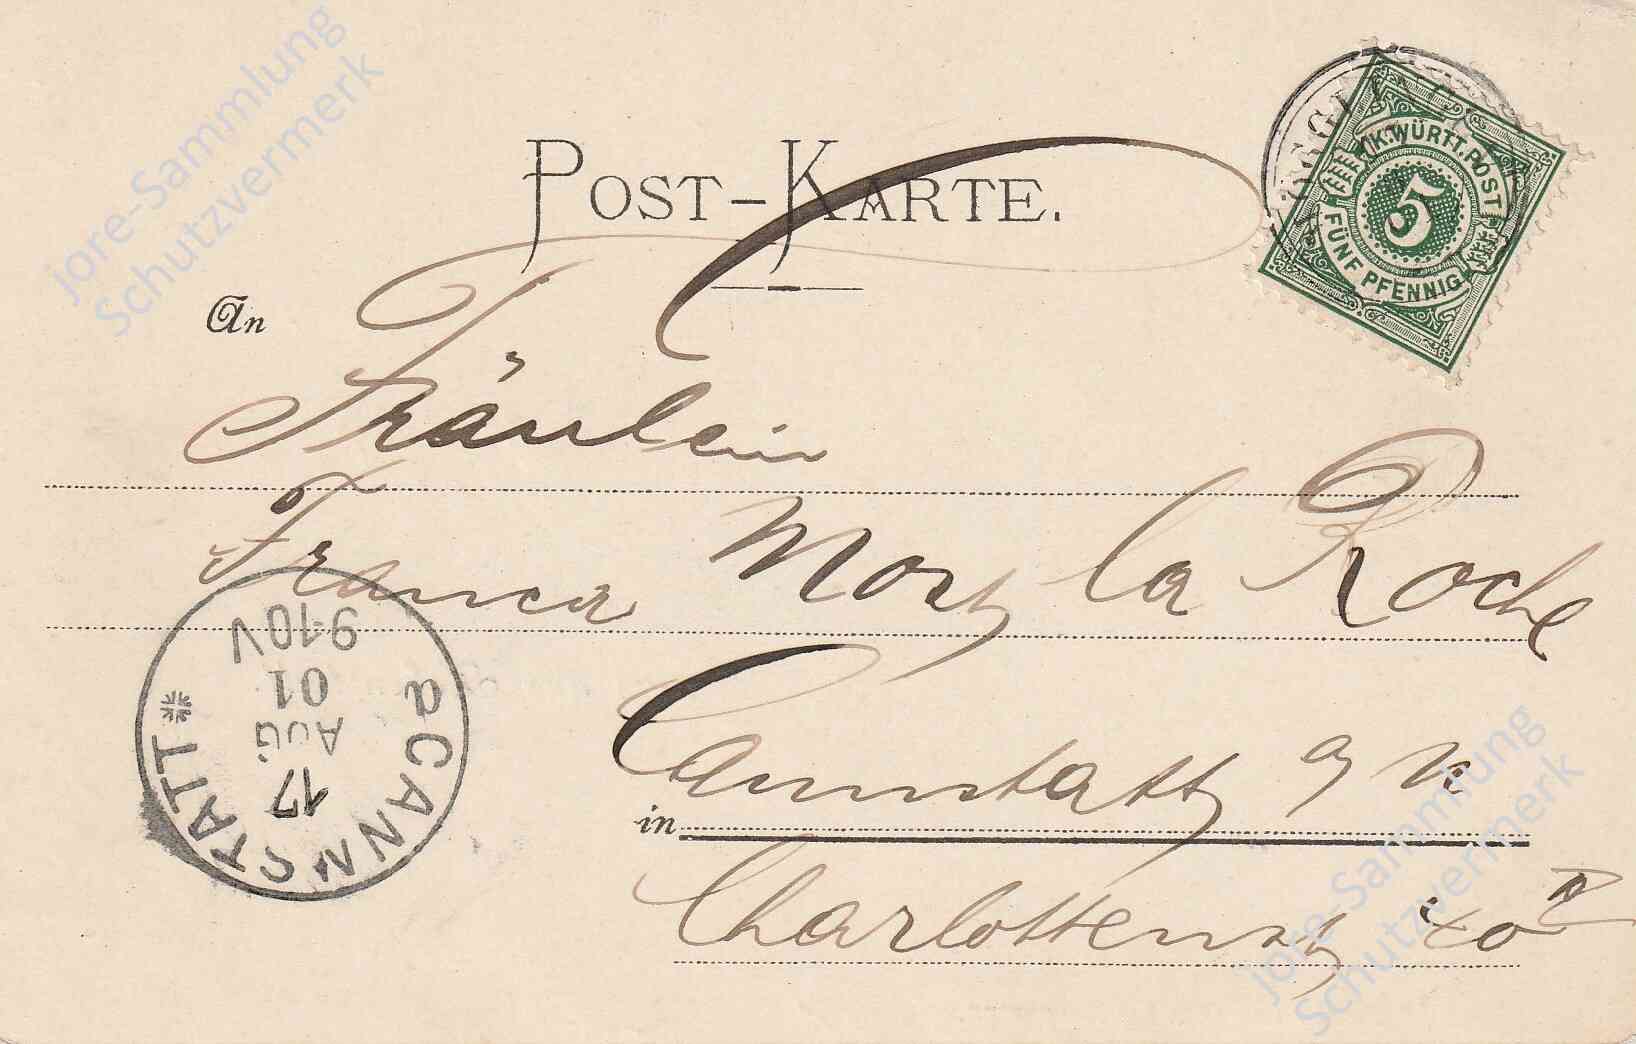 jore-Sammlung
Schutzvermerk
POST-KARTE.
K.WÜRTT.POST
5
FÜNF PFENNIG
An
Fräulein
Franca la Roche
in Cannstatt a N
Charlottenstr
CANNSTATT
17
AUG
01
9-10V
jore-Sammlung
Schutzvermerk